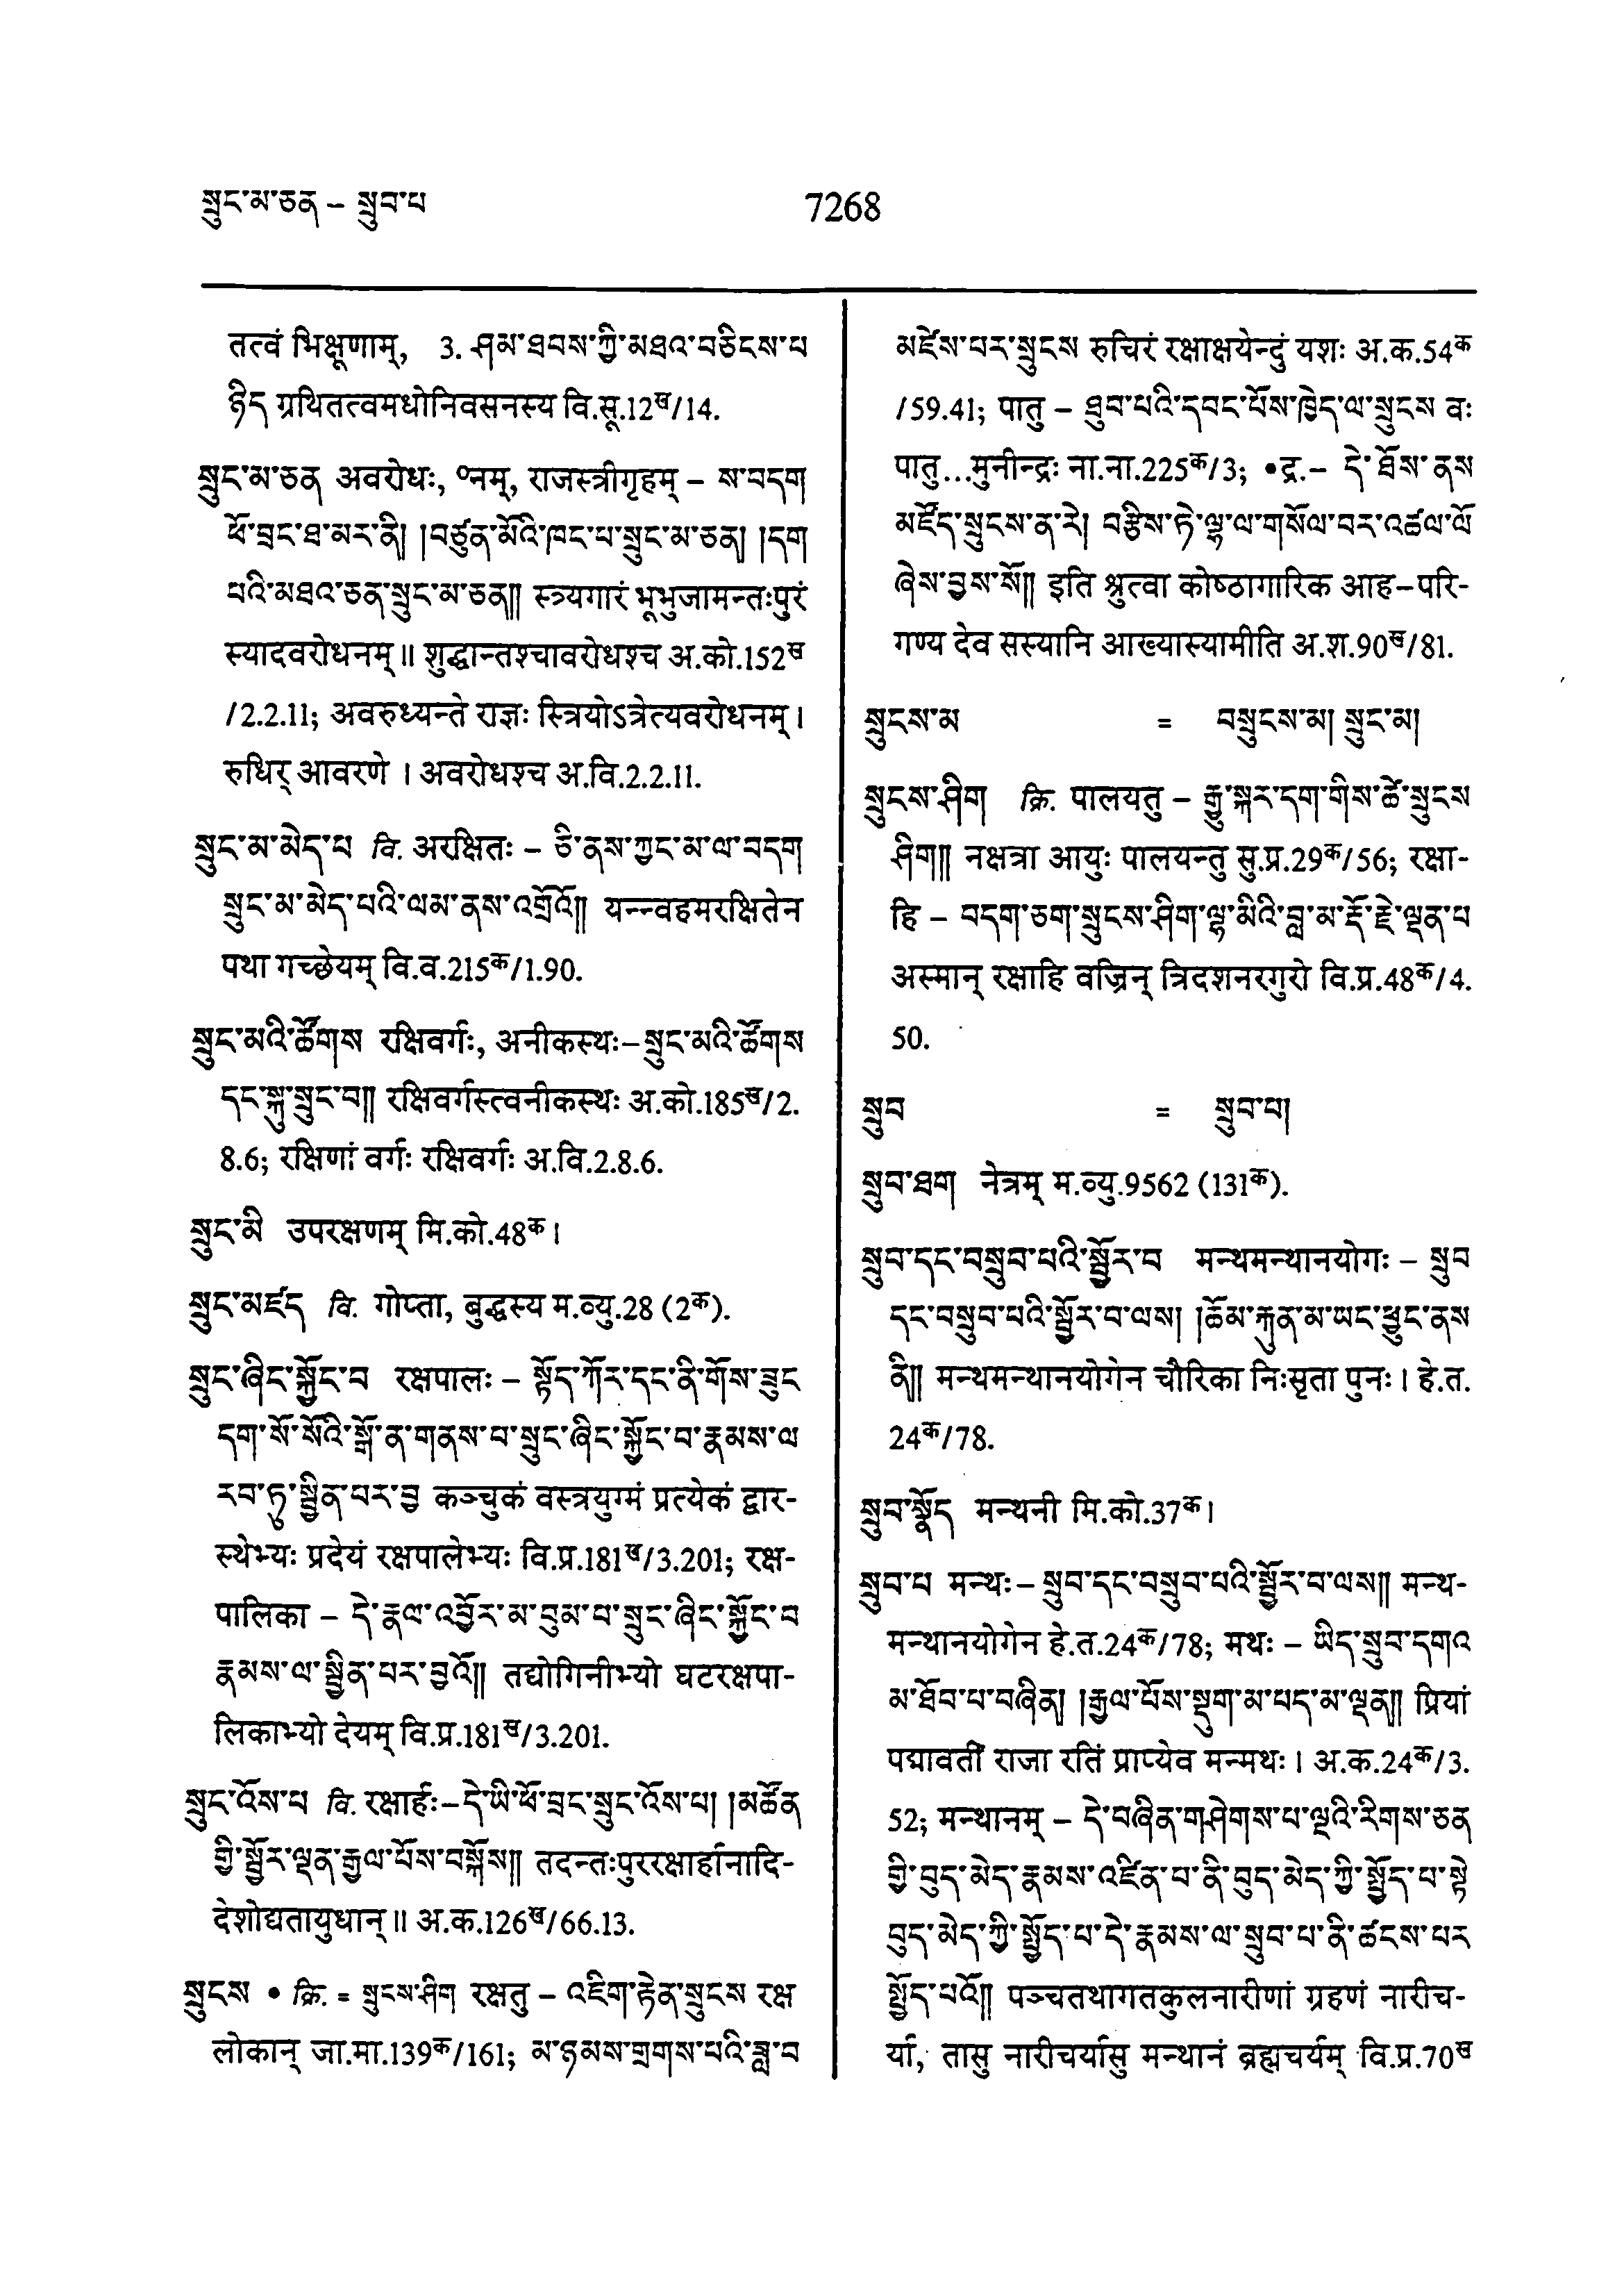 སྲུང་མ་ཅན – སྲུབ་པ
7268
तत्वं भिक्षूणाम्, 3. ཤམ་ཐབས་ཀྱི་མཐའ་བཅིངས་པ
ཉིད ग्रथितत्वमधोनिवसनस्य वि.सू.12ख/14.
སྲུང་མ་ཅན अवरोधः, ०नम्, राजस्त्रीगृहम् – ས་བདག
ཕོ་བྲང་ཐ་མར་ནི། །བཙུན་མོའི་ཁང་པ་སྲུང་མ་ཅན། །དག
པའི་མཐའ་ཅན་སྲུང་མ་ཅན།། स्त्र्यगारं भूभुजामन्तःपुरं
स्यादवरोधनम्॥ शुद्धान्तश्चावरोधश्च अ.को.152ख
/2.2.11; अवरुध्यन्ते राज्ञः स्त्रियोऽत्रेत्यवरोधनम्।
रुधिर् आवरणे । अवरोधश्च अ.वि.2.2.11.
སྲུང་མ་མེད་པ वि. अरक्षितः – ཅི་ནས་ཀྱང་མ་ལ་བདག
སྲུང་མ་མེད་པའི་ལམ་ནས་འགྲོའོ།། यन्न्वहमरक्षितेन
पथा गच्छेयम् वि.व.215क/1.90.
སྲུང་མའི་ཚོགས रक्षिवर्गः, अनीकस्थः–སྲུང་མའི་ཚོགས
དང་སྐུ་སྲུང་བ།། रक्षिवर्गस्त्वनीकस्थः अ.को.185ख/2.
8.6; रक्षिणां वर्गः रक्षिवर्गः अ.वि.2.8.6.
སྲུང་མི उपरक्षणम् मि.को.48क।
སྲུང་མཛད वि. गोप्ता, बुद्धस्य म.व्यु.28 (2क).
སྲུང་ཞིང་སྐྱོང་བ रक्षपालः – སྟོད་ཀོར་དང་ནི་གོས་ཟུང
དག་སོ་སོའི་སྒོ་ན་གནས་པ་སྲུང་ཞིང་སྐྱོང་བ་རྣམས་ལ
རབ་ཏུ་སྦྱིན་པར་བྱ कञ्चुकं वस्त्रयुग्मं प्रत्येकं द्वार-
स्थेभ्यः प्रदेयं रक्षपालेभ्यः वि.प्र.181ख/3.201; रक्ष-
पालिका – དེ་རྣལ་འབྱོར་མ་བུམ་པ་སྲུང་ཞིང་སྐྱོང་བ
རྣམས་ལ་སྦྱིན་པར་བྱའོ།། तद्योगिनीभ्यो घटरक्षपा-
लिकाभ्यो देयम् वि.प्र.181ख/3.201.
སྲུང་འོས་པ वि. रक्षार्हः–དེ་ཡི་ཕོ་བྲང་སྲུང་འོས་པ། །མཚོན
གྱི་སྦྱོར་ལྡན་རྒྱལ་པོས་བསྐོས།། तदन्तःपुररक्षार्हानादि-
देशोद्यतायुधान्॥ अ.क.126ख/66.13.
སྲུངས • क्रि. = སྲུངས་ཤིག रक्षतु – འཇིག་རྟེན་སྲུངས रक्ष
लोकान् जा.मा.139क/161; མ་ཉམས་གྲགས་པའི་ཟླ་བ
མཛེས་པར་སྲུངས रुचिरं रक्षाक्षयेन्दुं यशः अ.क.54क
/59.41; पातु – ཐུབ་པའི་དབང་པོས་ཁྱེད་ལ་སྲུངས वः
पातु...मुनीन्द्रः ना.ना.225क/3; •द्र.– དེ་ཐོས་ནས
མཛོད་སྲུངས་ན་རེ། བརྩིས་ཏེ་ལྷ་ལ་གསོལ་བར་འཚལ་ལོ
ཞེས་བྱས་སོ།། इति श्रुत्वा कोष्ठागारिक आह–परि-
गण्य देव सस्यानि आख्यास्यामीति अ.श.90ख/81.
སྲུངས་མ = བསྲུངས་མ། སྲུང་མ།
སྲུངས་ཤིག क्रि. पालयतु – རྒྱུ་སྐར་དག་གིས་ཚེ་སྲུངས
ཤིག།། नक्षत्रा आयुः पालयन्तु सु.प्र.29क/56; रक्षा-
हि – བདག་ཅག་སྲུངས་ཤིག་ལྷ་མིའི་བླ་མ་རྡོ་རྗེ་ལྡན་པ
अस्मान् रक्षाहि वज्रिन् त्रिदशनरगुरो वि.प्र.48क/4.
50.
སྲུབ = སྲུབ་པ།
སྲུབ་ཐག नेत्रम् म.व्यु.9562 (131क).
སྲུབ་དང་བསྲུབ་པའི་སྦྱོར་བ मन्थमन्थानयोगः – སྲུབ
དང་བསྲུབ་པའི་སྦྱོར་བ་ལས། །ཆོམ་རྐུན་མ་ཡང་ཕྱུང་ནས
ནི།། मन्थमन्थानयोगेन चौरिका निःसृता पुनः। हे.त.
24क/78.
སྲུབ་སྣོད मन्थनी मि.को.37क।
སྲུབ་པ मन्थः– སྲུབ་དང་བསྲུབ་པའི་སྦྱོར་བ་ལས།། मन्थ-
मन्थानयोगेन हे.त.24क/78; मथः – ཡིད་སྲུབ་དགའ
མ་ཐོབ་པ་བཞིན། །རྒྱལ་པོས་སྡུག་མ་པད་མ་ལྡན།། प्रियां
पद्मावतीं राजा रतिं प्राप्येव मन्मथः। अ.क.24क/3.
52; मन्थानम् – དེ་བཞིན་གཤེགས་པ་ལྔའི་རིགས་ཅན
གྱི་བུད་མེད་རྣམས་འཛིན་པ་ནི་བུད་མེད་ཀྱི་སྤྱོད་པ་སྟེ
བུད་མེད་ཀྱི་སྤྱོད་པ་དེ་རྣམས་ལ་སྲུབ་པ་ནི་ཚངས་པར
སྤྱོད་པའོ།། पञ्चतथागतकुलनारीणां ग्रहणं नारीच-
र्या, तासु नारीचर्यासु मन्थानं ब्रह्मचर्यम् वि.प्र.70ख